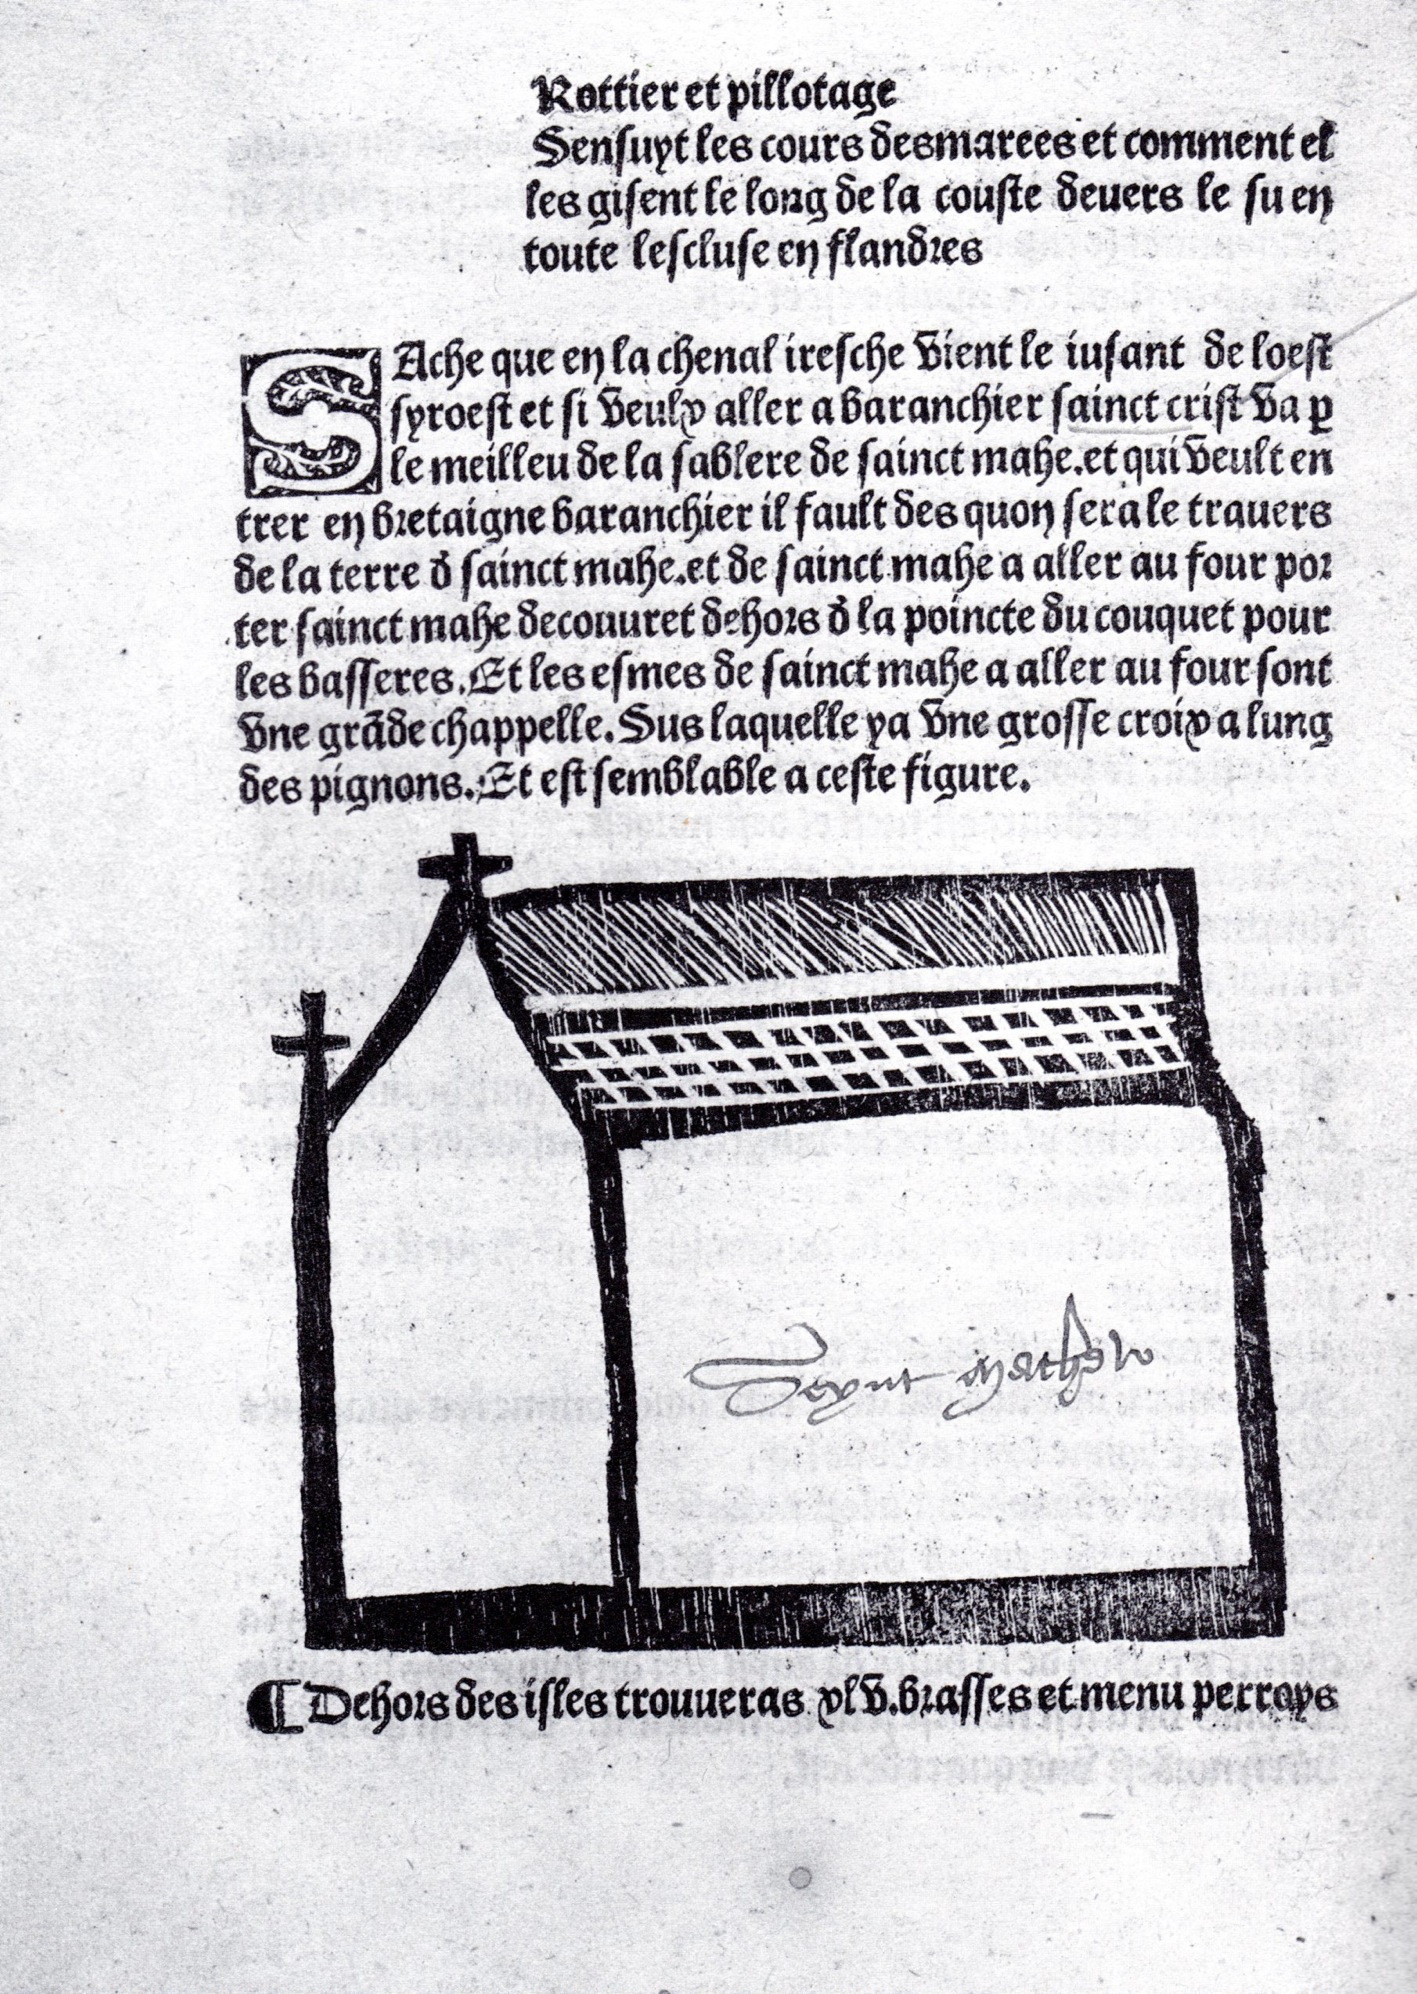 Rottier et pillotage
Sensuyt les cours desmarees et comment el
les gisent le long de la couste deuers le su en
toute lescluse en flandres
SAche que en la chenal iresche vient le iusant de loest
syroest et si veulx aller a baranchier sainct crist va p̲
le meilleu de la sablere de sainct mahe.et qui veult en
trer en bretaigne baranchier il fault des quon sera le trauers
de la terre d̄ sainct mahe.et de sainct mahe a aller au four por
ter sainct mahe decouuret dehors d̄ la poincte du couquet pour
les basseres. Et les esmes de sainct mahe a aller au four sont
vne grāde chappelle. Sus laquelle ya vne grosse croix a lung
des pignons. Et est semblable a ceste figure.
Seynt
¶ Dehors des isles trouueras xlv. brasses et menu perroys